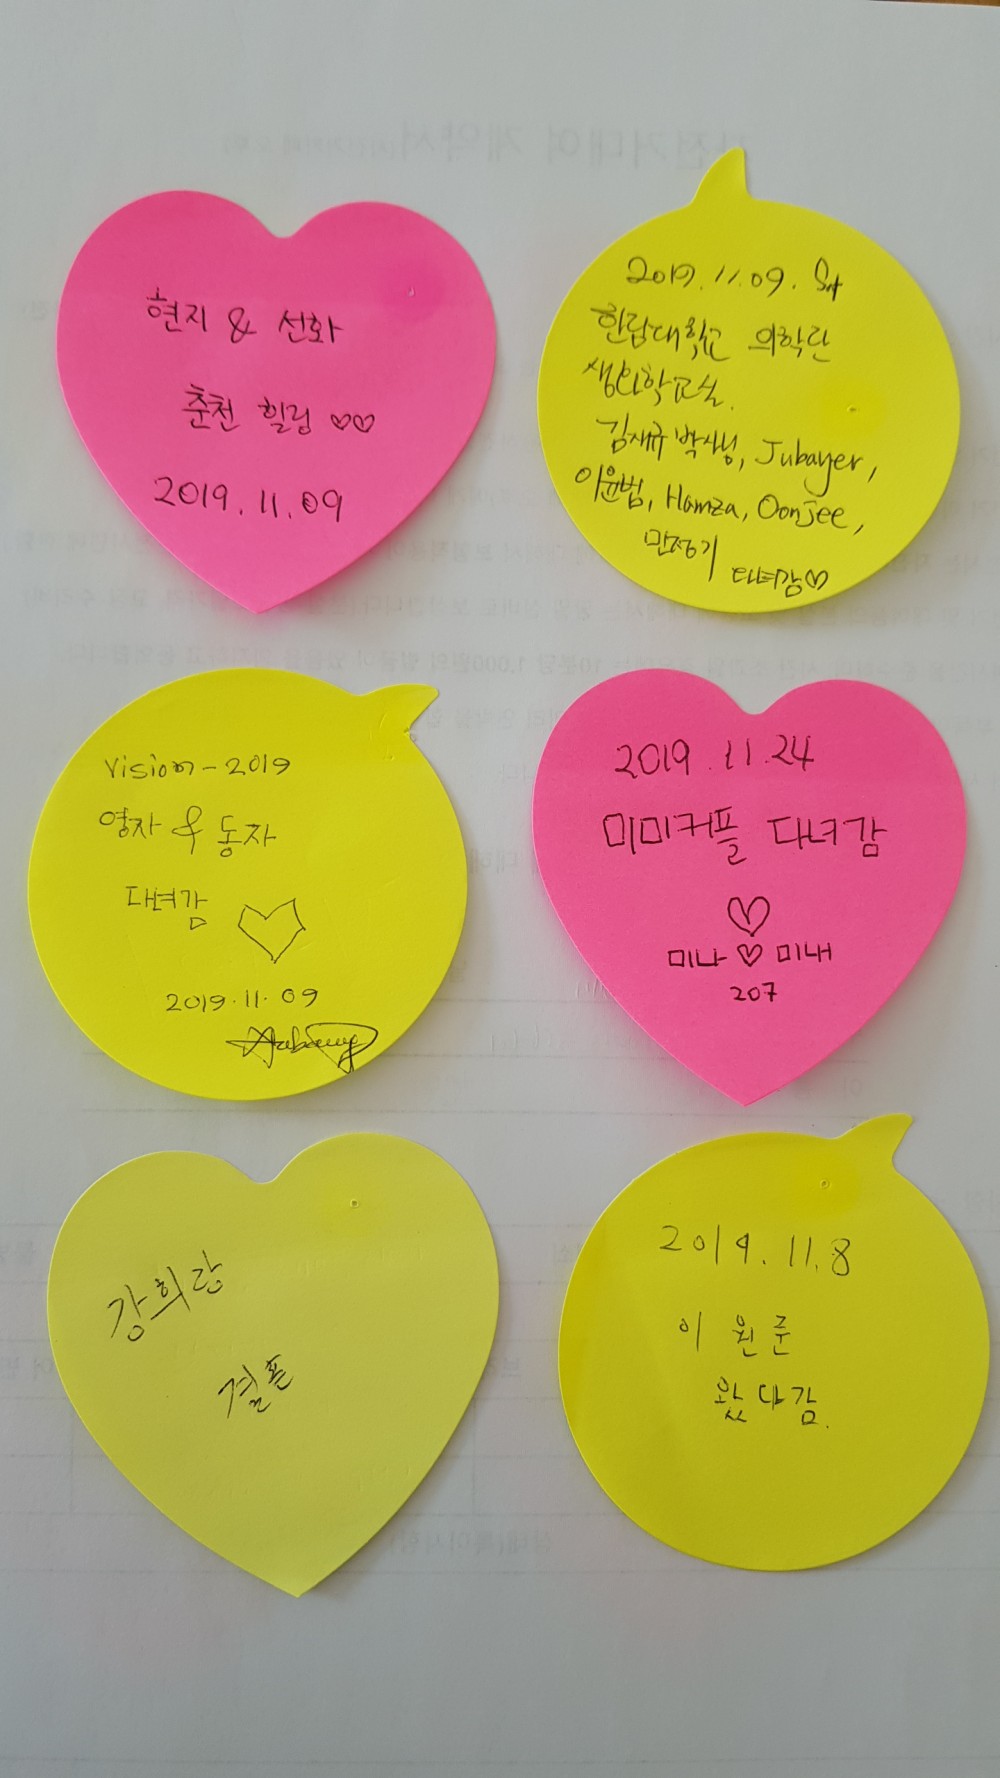 현지 & 선화
춘천 힐링 ♡♡
2019.11.09
2019.11.09. Sat
한림대학교 의학관
생리학교실.
김재규박사님, Jubayer,
이윤범, Hamza, Oonjee,
민정기
다녀감♡
Vision-2019
영자 & 동자
다녀감 ♡
2019.11.09
2019.11.24
미미커플 다녀감
♡
미나 ♡ 미내
207
강희랑
결혼
2019.11.8
이원준
왔다감.